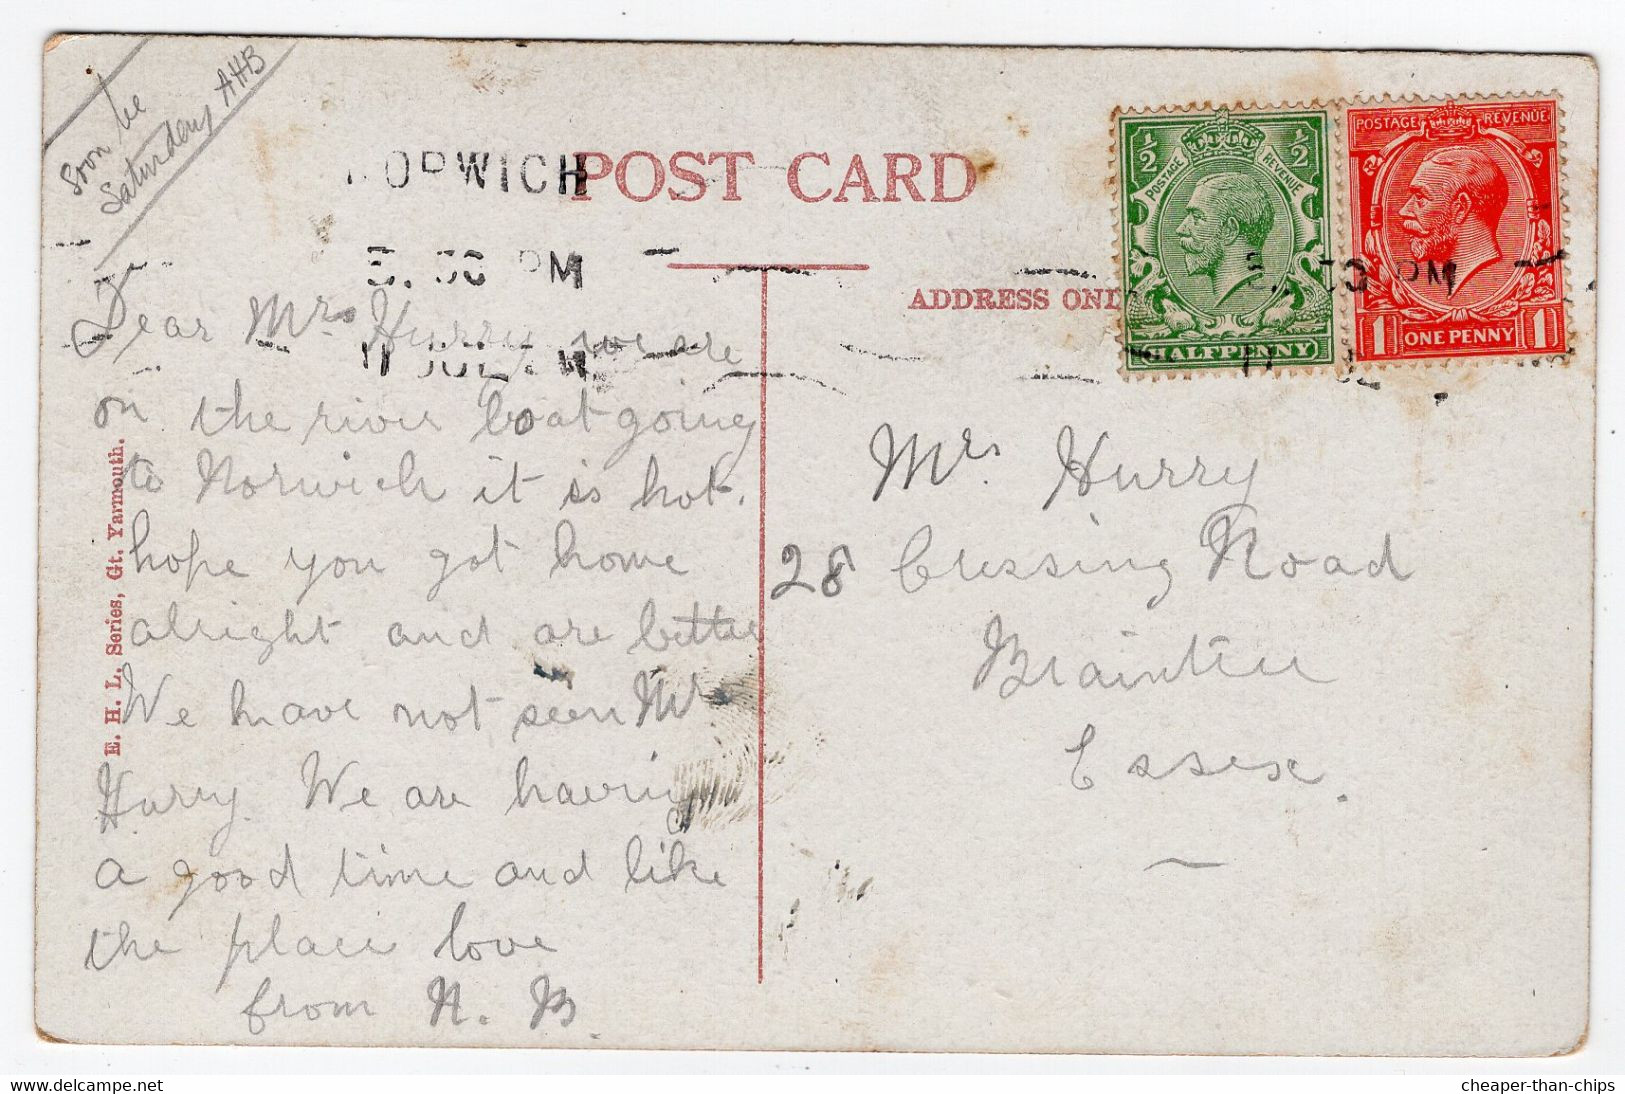 Soon be
Saturday AHB
NORWICH
POST CARD
PM
11 JUL
ADDRESS ONL
½ ½
POSTAGE REVENUE
HALFPENNY
POSTAGE REVENUE
1 ONE PENNY 1
PM
11
Dear Mrs Hurry we are
on the river boat going
to Norwich it is hot.
hope you got home
alright and are better
We have not seen Mr
Hurry. We are having
a good time and like
the place love
from N. B.
Mrs Hurry
28 Cressing Road
Braintree
Essex.
E. H. L. Series, Gt. Yarmouth.
delcampe.net
cheaper-than-chips